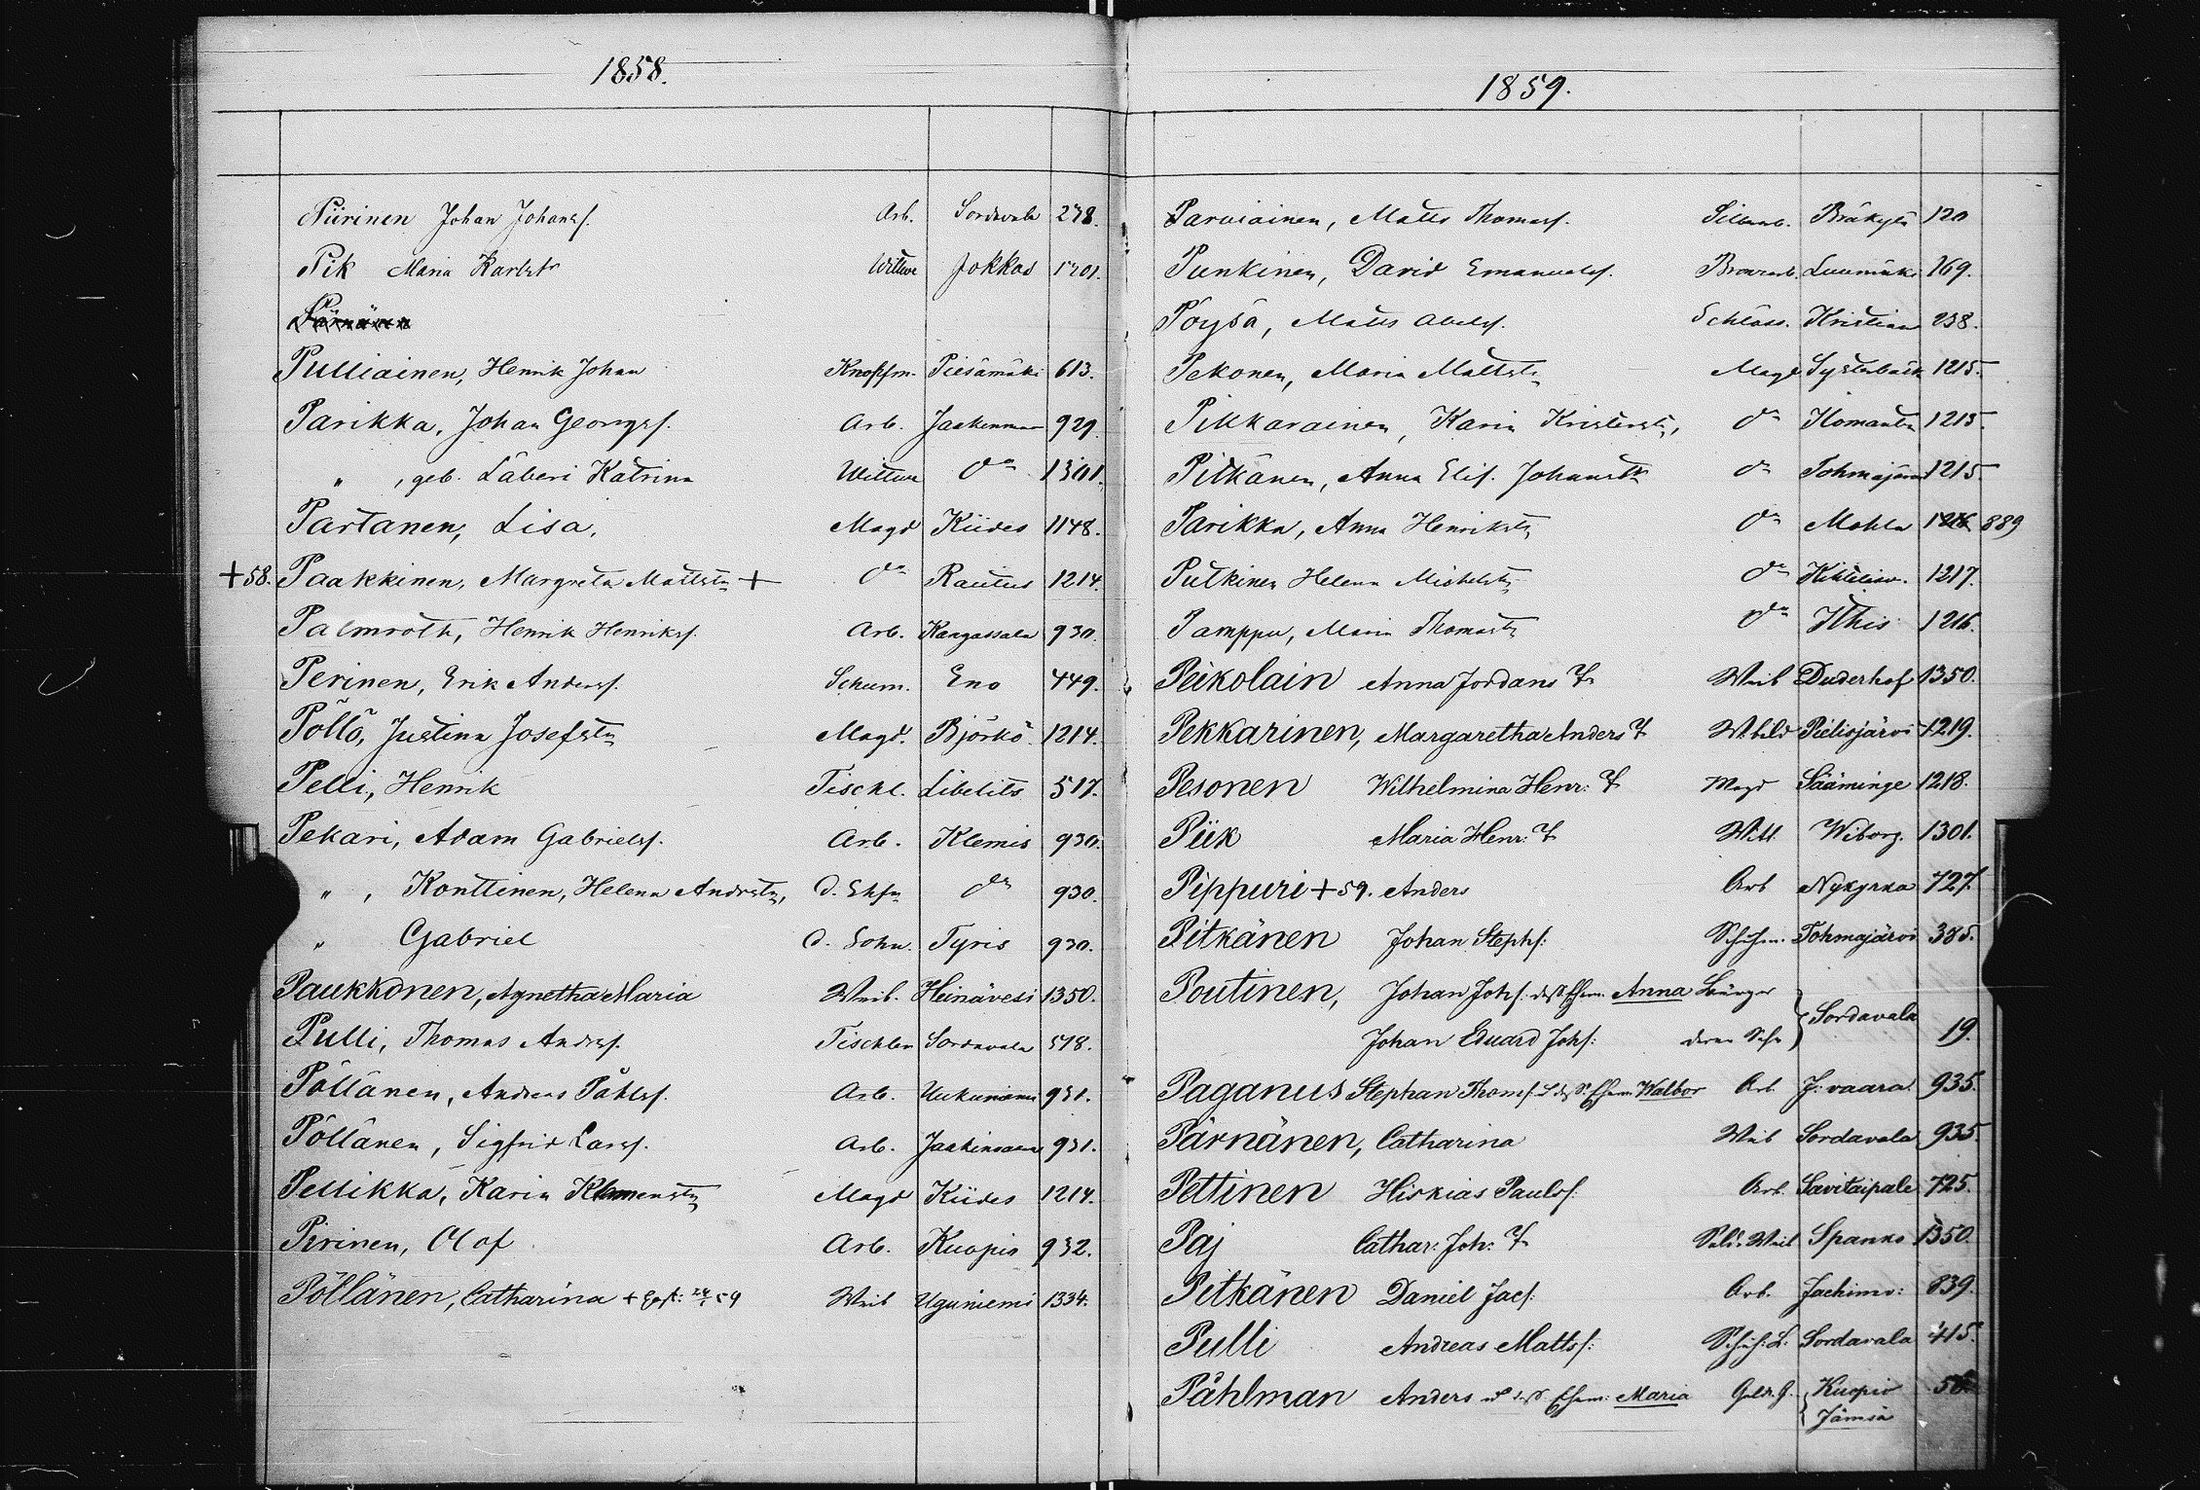 1858.
Piirinen Johan Johansf. Arb. Sordavala 278.
Pik Maria Karlsts Wittwe Jokkas 1201.
Pulliainen, Henrik Johan Knopfm. Piesämäki 613.
Parikka, Johan Georgsf. Arb. Jaakimwa 929.
" , geb. Läberi Katrina Wittwe do 1301.
Partanen, Lisa, Magd Kiides 1148.
+58. Paakkinen, Margreta Mattstr + do Rautus 1214.
Palmroth, Henrik Henriksf. Arb. Kangassala 930.
Perinen, Erik Andersf. Schum. Eno 449.
Pöllö, Justina Josefstr Magd. Björkö. 1214.
Pelli, Henrik Tischl. Libelits 517.
Pekari, Adam Gabrielsf. Arb. Klemis 930.
" , Konttinen, Helena Andrstr, d. Ehfr do 930.
" Gabriel d. Sohn. Tyris 930.
Paukkonen, Agnetha Maria Weib. Heinävesi 1350.
Pulli, Thomas Andrsf. Tischler Sordavala 518.
Pöllänen, Andreas Påhlsf. Arb. Uukuniemi 931.
Pöllänen, Sigfrid Larsf. Arb. Jaakimvara 931.
Pellikka, Karin Klemenstr Magd Kiides 1214.
Pirinen, Olof Arb. Kuopio 932.
Pöllänen, Catharina + 59 Weib Uguniemi 1334.
1859.
Parviainen, Matts Thomasf. Silberarb. Bräkylä 120
Punkinen, David Emanuelsf. Bronzarb. Luumäki 169.
Pöysä, Matts Abelsf. Schloss. Kristian 238.
Pekonen, Maria Mattstr Magd Systerbäck 1215.
Pikkarainen, Karin Kristerstr, do Ilomants 1215.
Pitkänen, Anna Elis. Johanstr do Tohmajärvi 1215.
Parikka, Anna Henrikstr do Mohla 1216 889
Putkinen Helena Michelstr do Kiktelisw. 1217.
Pamppu, Maria Thomastr do Ithis 1216.
Peikolain Anna Jordans T. Weib Duderhof 1350.
Pekkarinen, Margaretha Anders T. Pielisjärvi 1219.
Pesonen Wilhelmina Henr: T. Magd Sääminge 1218.
Piik Maria Henr: T. Witt. Wiborg. 1301.
Pippuri +59. Anders Arb Nykyrka 727.
Pitkänen Johan Stephs: Schuhm. Tohmajärvi 385.
Poutinen, Johan Johs. dess. Ehem. Anna Bürger
Johan Eduard Johs: deren Sohn } Sordavala 19.
Paganus Stephan Thoms. u. dess. Ehem. Walbor Arb. J: vaara. 935.
Pärnänen, Catharina Weib Sordavala 935.
Pettinen Hiskias Paulsf. Arb. Savitaipale 725.
Paj Cathar: Joh: T. Sold. Weib Spanko 1350.
Pitkänen Daniel Jacs. Arb. Jachimv: 839.
Pulli Andreas Mattsf: Schuh: L. Sordavala 415.
Påhlman Anders u. dess. Ehem: Maria Gold. G. { Kuopio 56.
Jämsä